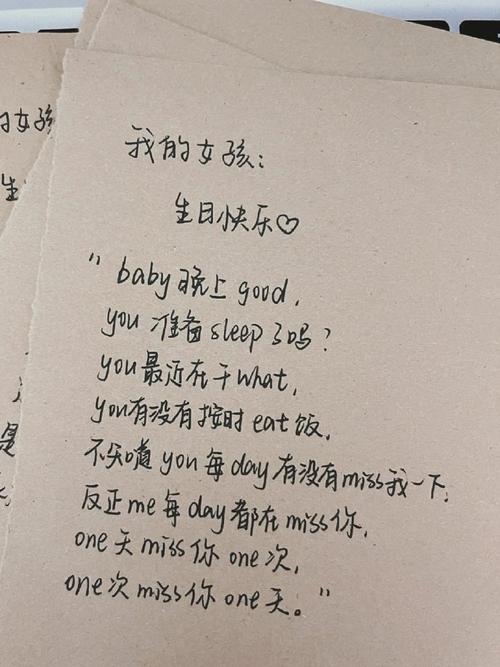 我的女孩：
生日快乐♡
"baby晚上good,
you 准备sleep了吗?
you最近在干what,
you有没有按时eat饭,
不知道you每day有没有miss我一下,
反正me每day都在miss你,
one天miss你one次,
one次miss你one天。"
的女孩
生
是